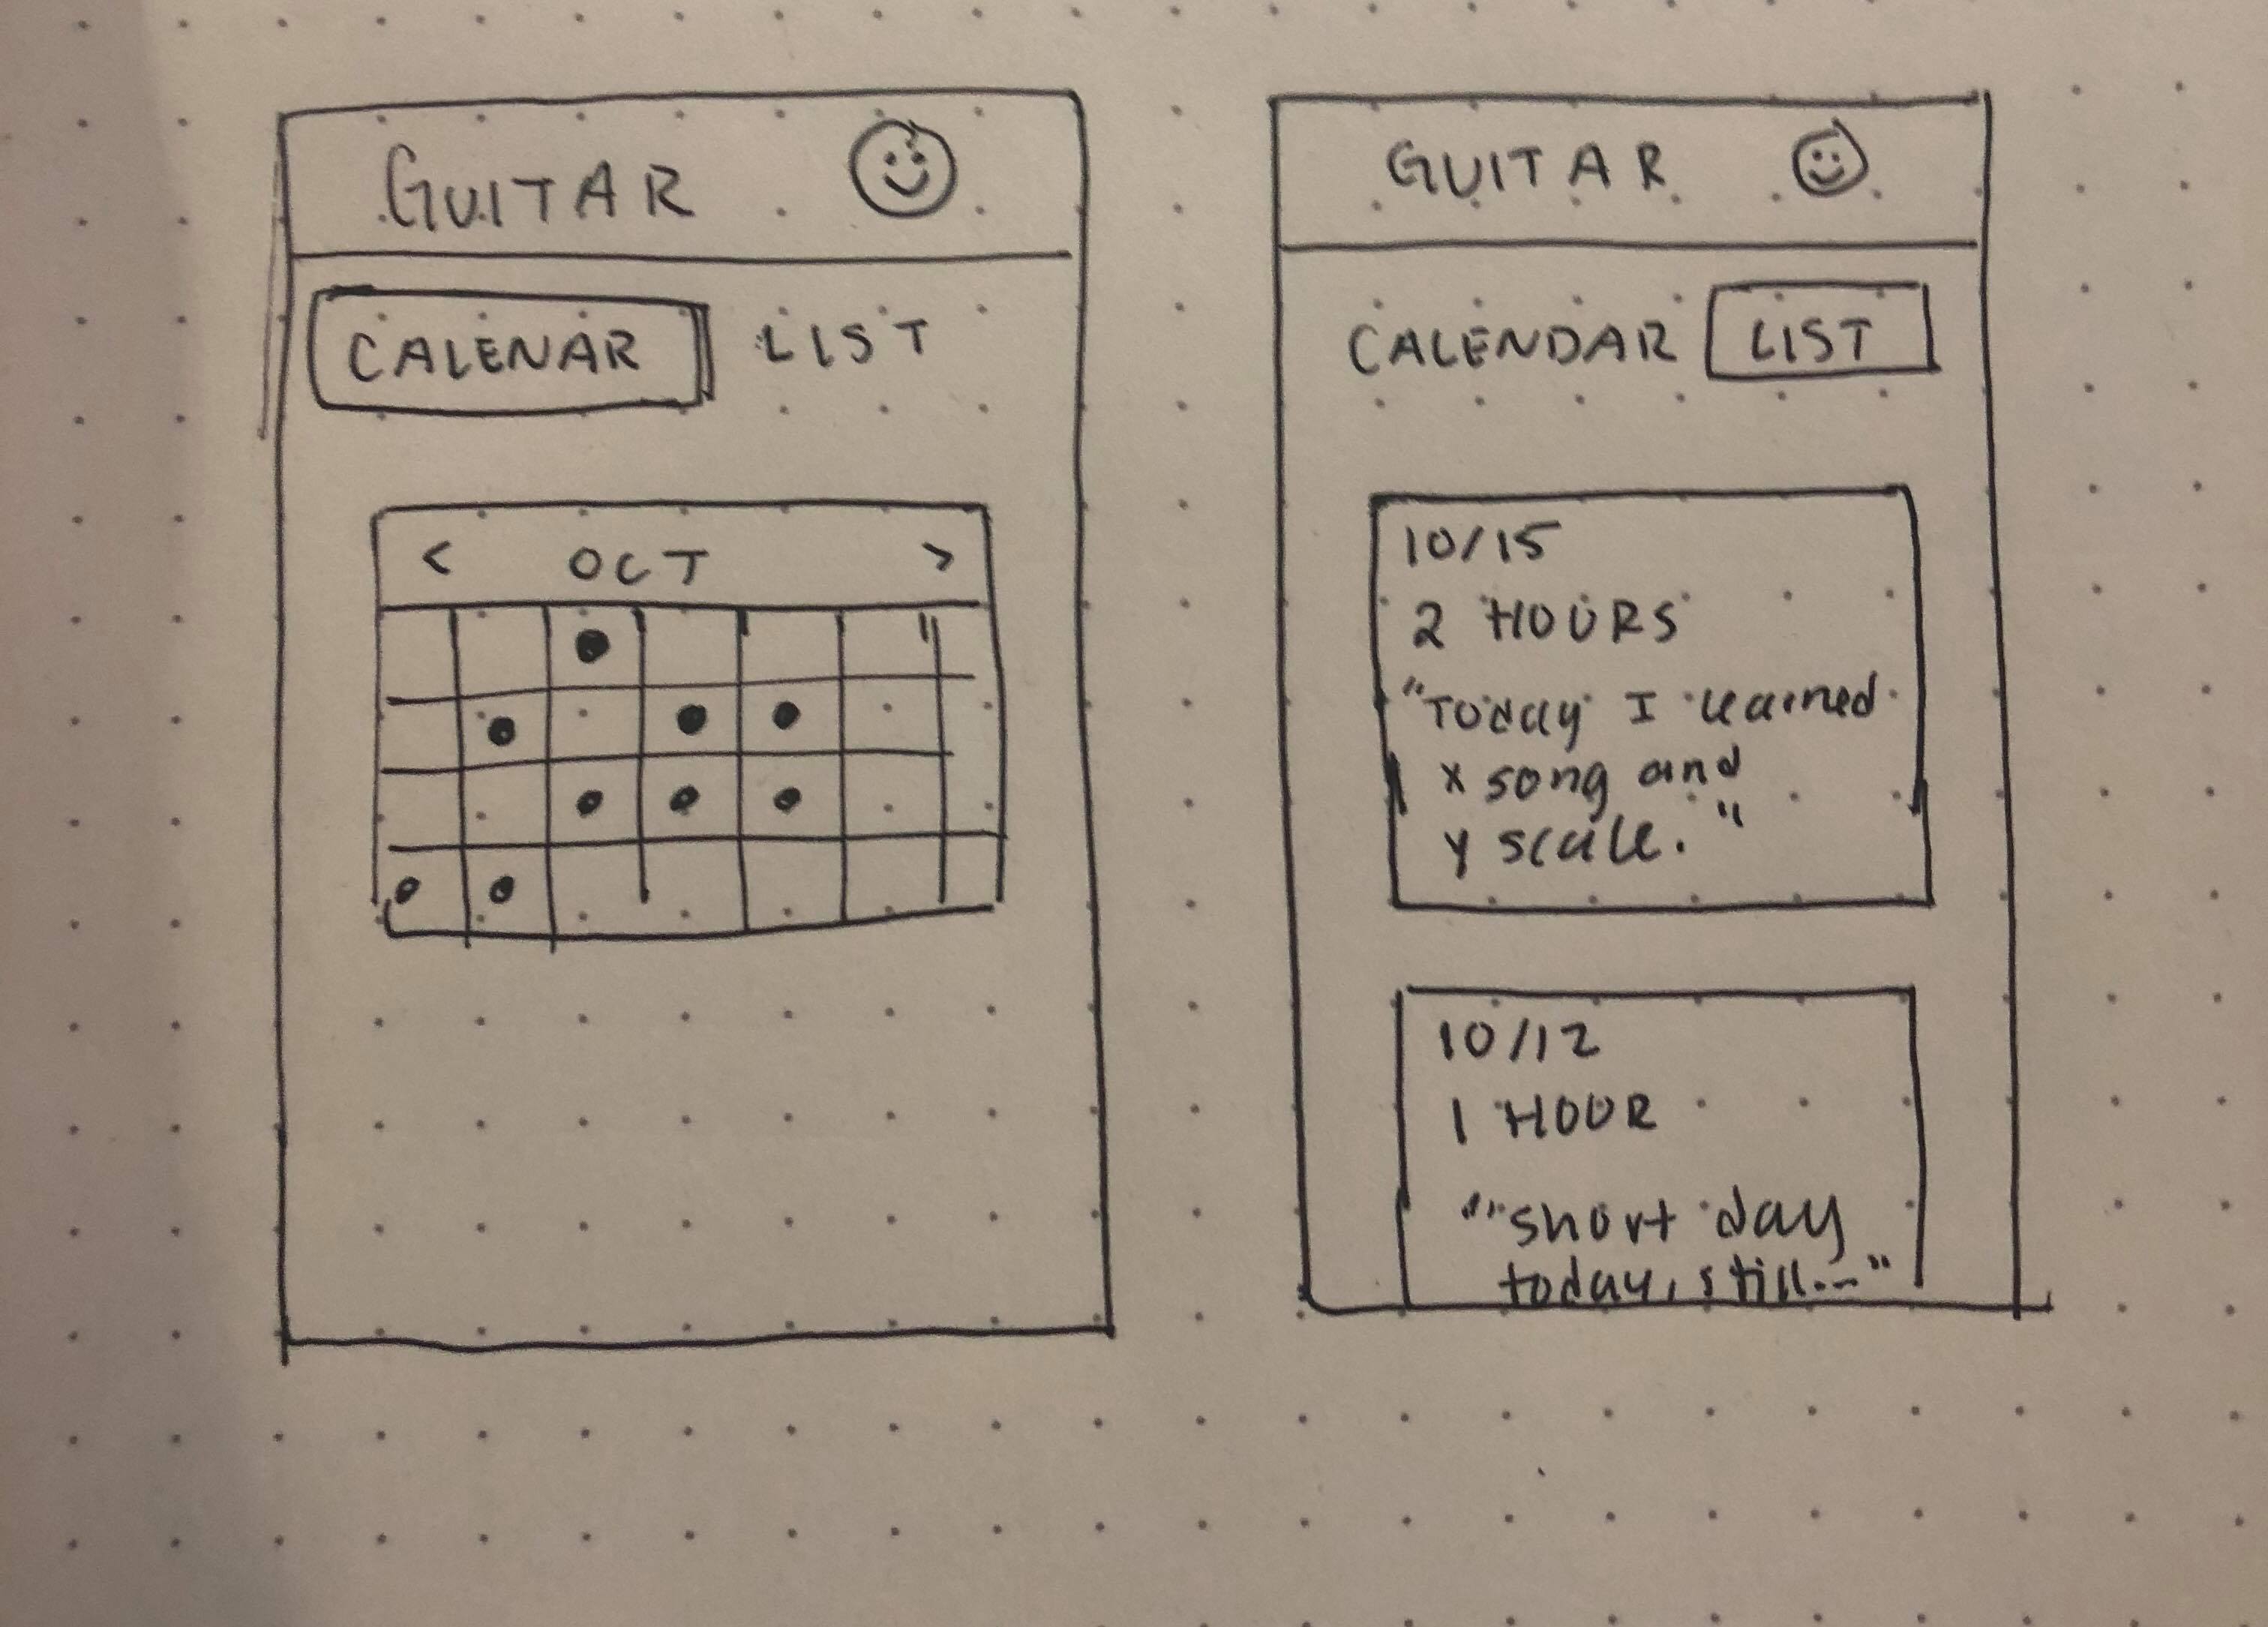 GUITAR
CALENAR LIST
< OCT >
GUITAR
CALENDAR LIST
10/15
2 HOURS
"Today I learned
x song and
y scale."
10/12
1 HOUR
"short day
today, still..."